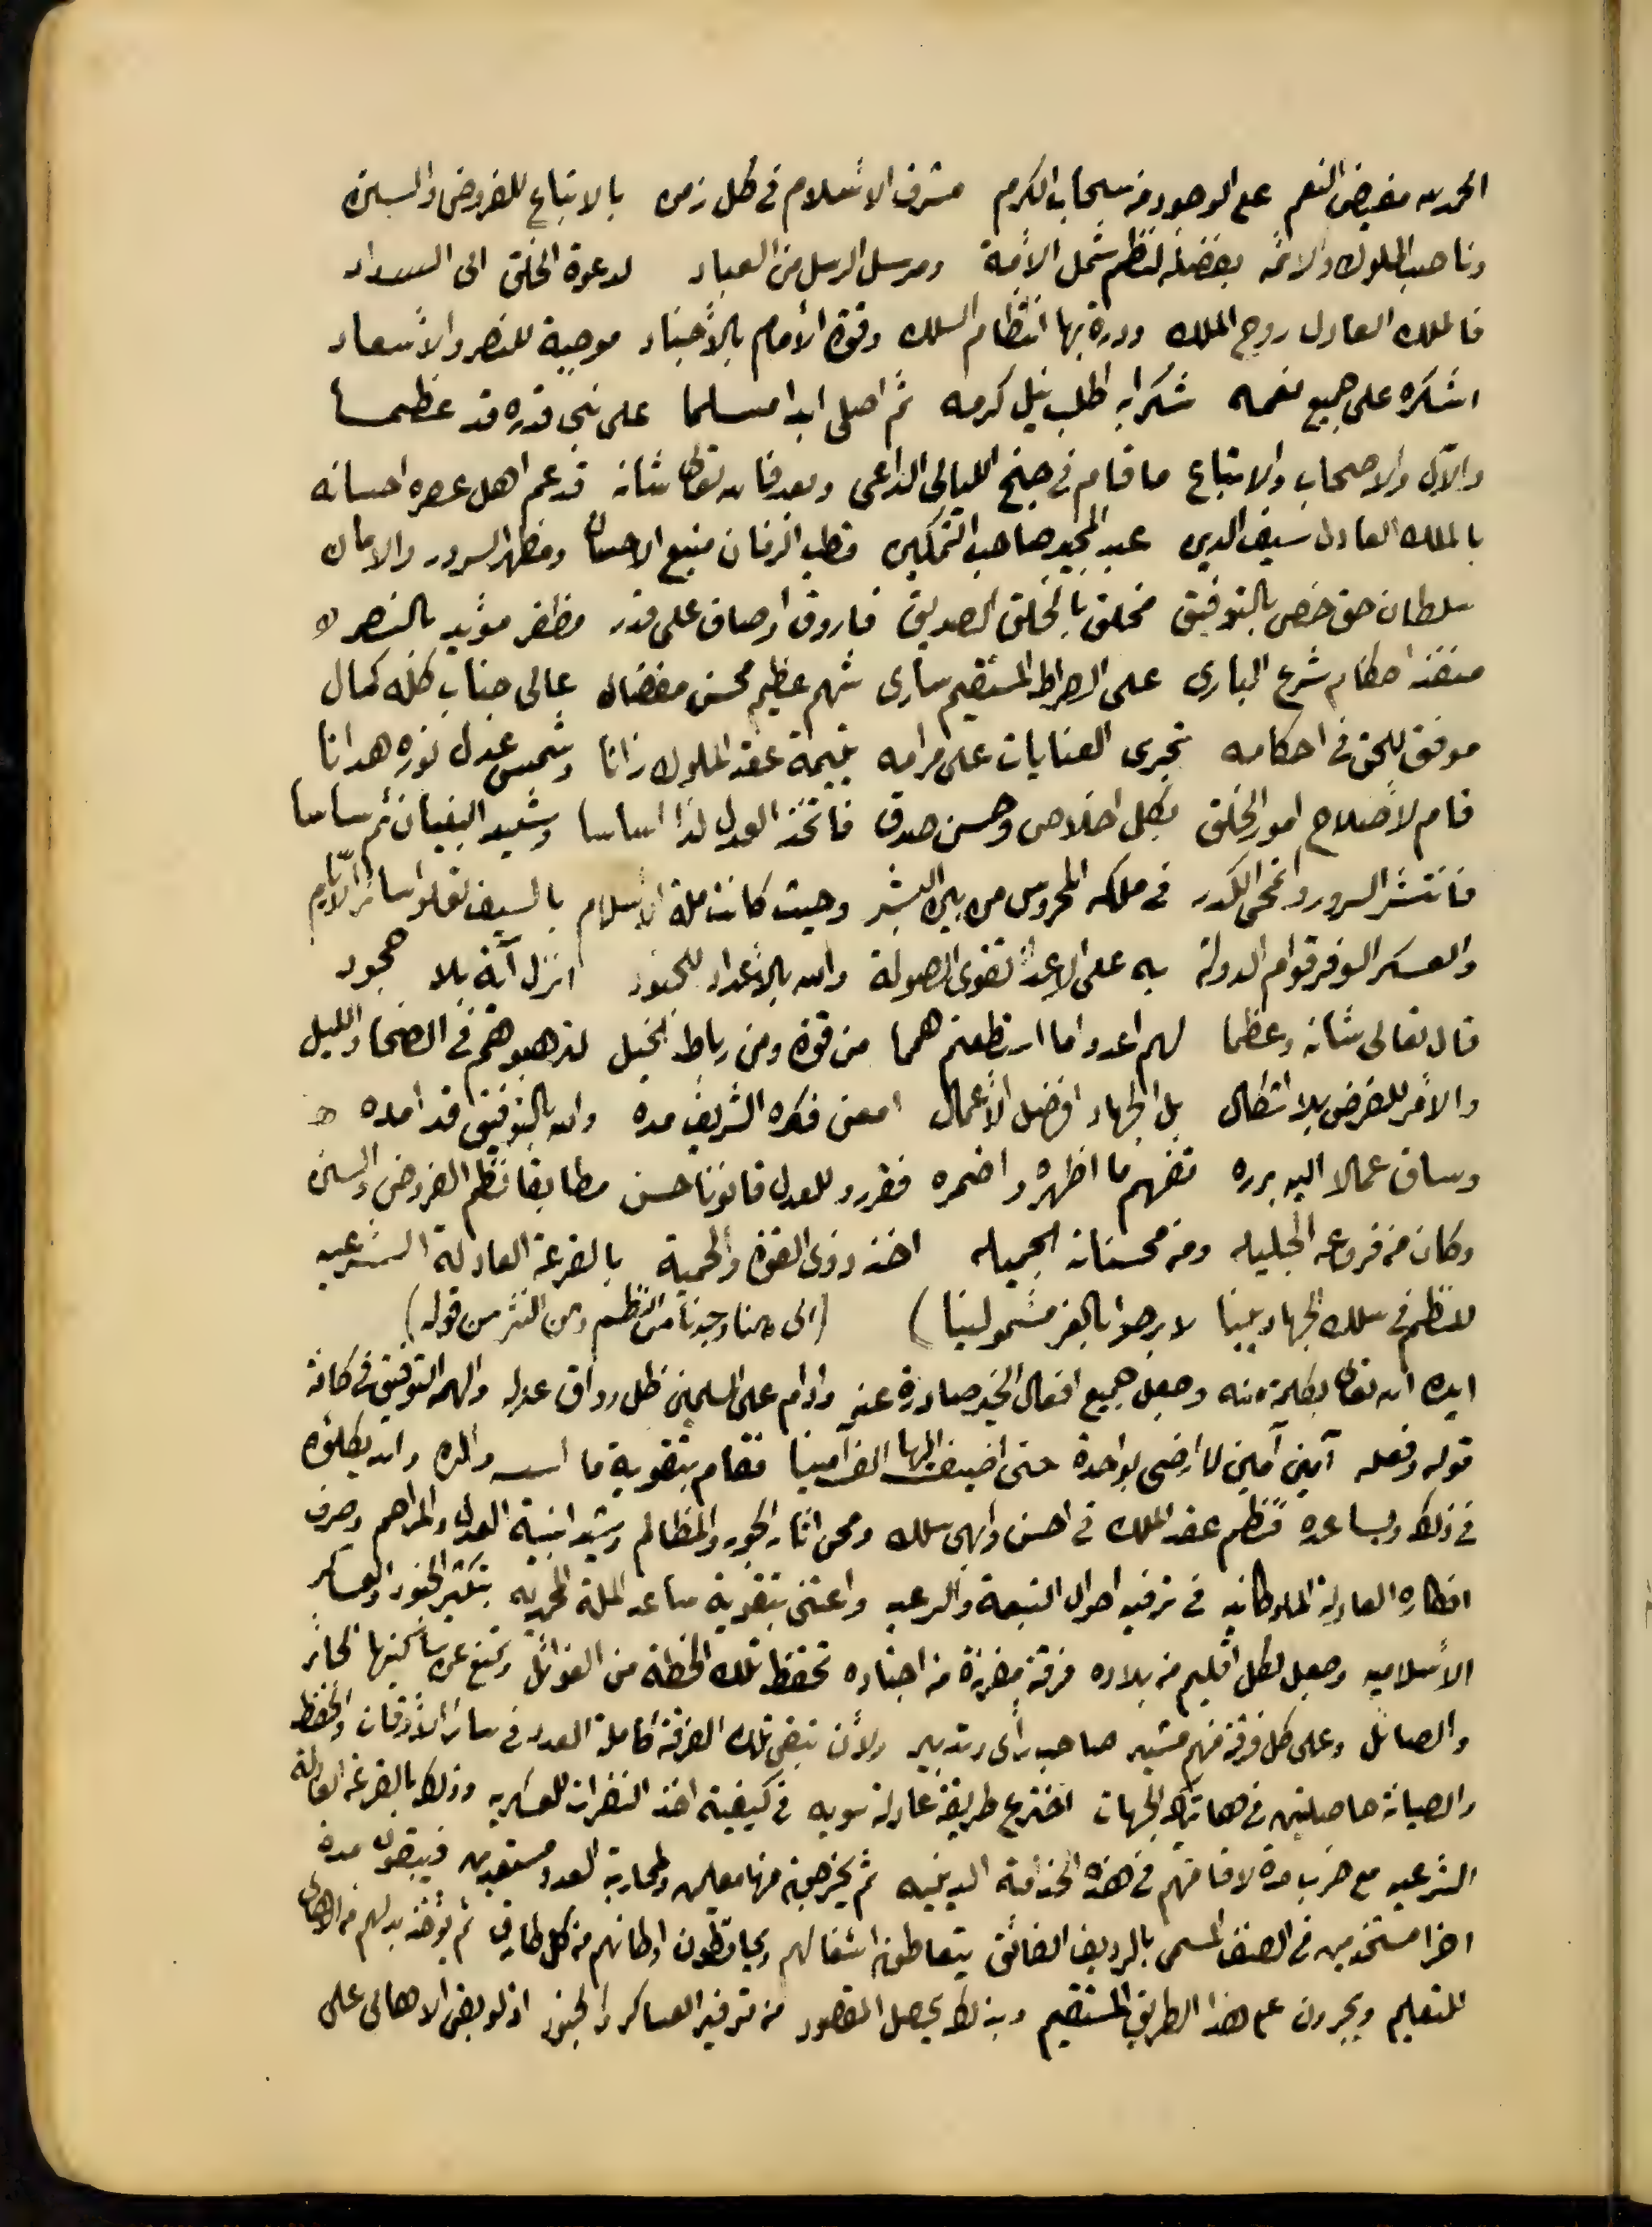 الحمد لله مفيض النعم على الوجود من سحاب الكرم مشرف الاسلام في كل زمن بالاتباع للفروض والسنن
وناصب الملوك والائمه بفضله لنظم شمل الامة ومرسل الرسل من العباد لدعوة الخلق الى السداد
فالملك العادل روح الملك ودرة بها انتظام السلك وقوة الأمام بالأجناد موجبة للنصر والاسعاد
اشكره على جميع نعمه شكرا به اطلب نيل كرمه ثم اصلى ابدا مسلما على نبي قدره قد عظما
والآل والاصحاب والاتباع ما قام في جنح الليالى الداعى وبعد فالله تعالى شانه قد عم اهل عصره احسانه
بالملك العادل سيف الدين عبد المجيد صاحب التمكين قطب الزمان منبع الاحسان ومظهر السرور والامان
سلطان حق خص بالتوفيق مخلق بالخلق الصديق فاروق اوصاف على قدر مظفر مؤيد بالنصر
منفذ احكام شرع البارى على الصراط المستقيم سارى شهم عظيم محسن مفضال عالى جناب كله كمال
موفق للحق في احكامه تجرى العنايات على مرامه يتيمة عقد الملوك زانا وشمس عدل نوره هدانا
قام لاصلاح امور الخلق بكل اخلاص وحسن صدق فاتخذ العدل لذا اساسا وشيد البنيان ثم ساسا
فانتشر السرور وانمحى الكدر في ملكه المحروس من بين البشر وحيث كانت ملة الاسلام بالسيف تعلو سائر الأيام
والعسكر الوفر قوام الدولة به على الاعدا تقوى الصولة والله بالاعداد للجنود انزل آية بلا جحود
قال تعالى شانه وعظما لهم اعدوا ما استطعتم همما من قوة ومن رباط الخيل لترهبوهم في الضحا والليل
والامر للفرض بلا اشكال بل الجهاد افضل الأعمال امعن فكره الشريف مده والله بالتوفيق قد امده
وساق عمالا اليه برره تفهم ما اظهره واضمره فقرروا للعدل قانونا حسن مطابقا نظم الفروض والسنن
وكان من فروعه الجليله ومن محسناته الجميله اخذ ذوى القوة والحمية بالقرعة العادلة الشرعيه
للنظم في سلك الجهاد بينا لا برحوا بالعز مشمولينا) (الى هنا وجدنا من النظم ومن النثر من قوله)
ايده الله تعالى بكلمة منه وجعل جميع افعال الخير صادرة عنه وادام على المسلمين ظل رواق عدله والهمه التوفيق في كافة
قوله وفعله آمين آمين لا ارضى بواحدة حتى اضيف اليها الف آمينا فقام بتقوية ما اسسه والده والله يكلؤه
في ذلك ويساعده فنظم عقد الملك في احسن وابهى سلك ومحى اثار الجور والمظالم وشيد ابنية العدل والمراحم وصرف
افكاره العادلة الملوكانيه في ترفيه احوال التبعة والرعيه واعتنى بتقوية ساعد الملة المحمديه بتكثير الجنود والعساكر
الاسلاميه وجعل لكل اقليم من بلاده فرقة مفرزة من اجناده تحفظ تلك الخطة من الغوائل وتمنع عن ساكنيها الجائر
والصائل وعلى كل فرقة منهم مشير صاحب رأى وتدبير ولأن تبقى تلك الفرقة كاملة العدد في سائر الأوقات والحفظ
والصيانة حاصلتين في هاتيك الجهات اخترع طريقة عادلة سويه في كيفية اخذ النفرات العسكريه وذلك بالقرعة العادلة
الشرعيه مع ضرب مدة لاقامتهم في هذه الخدامة الدينيه ثم يخرجون منها معلمين ولمحاربة العدو مستعدين فيبقون مدة
اخرا مستخدمين في الصنف المسمى بالرديف الفائق يتعاطون اشغالهم ويحافظون اوطانهم من كل طارق ثم يؤخذ بدلهم من الاهالى
للتعليم ويجرون على هذا الطريق المستقيم وبذلك يحصل المقصود من توفير العساكر والجنود اذ لو بقى الاهالى على